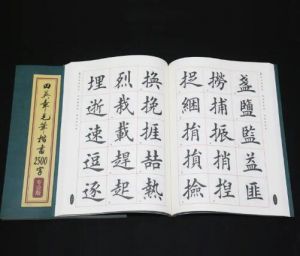 田英章毛筆楷書2500字
盞鹽監益匪
撈捕振捎捏
捉綑捐損撿
換挽捱喆熱
烈栽載趕起
埋逝速逗逐